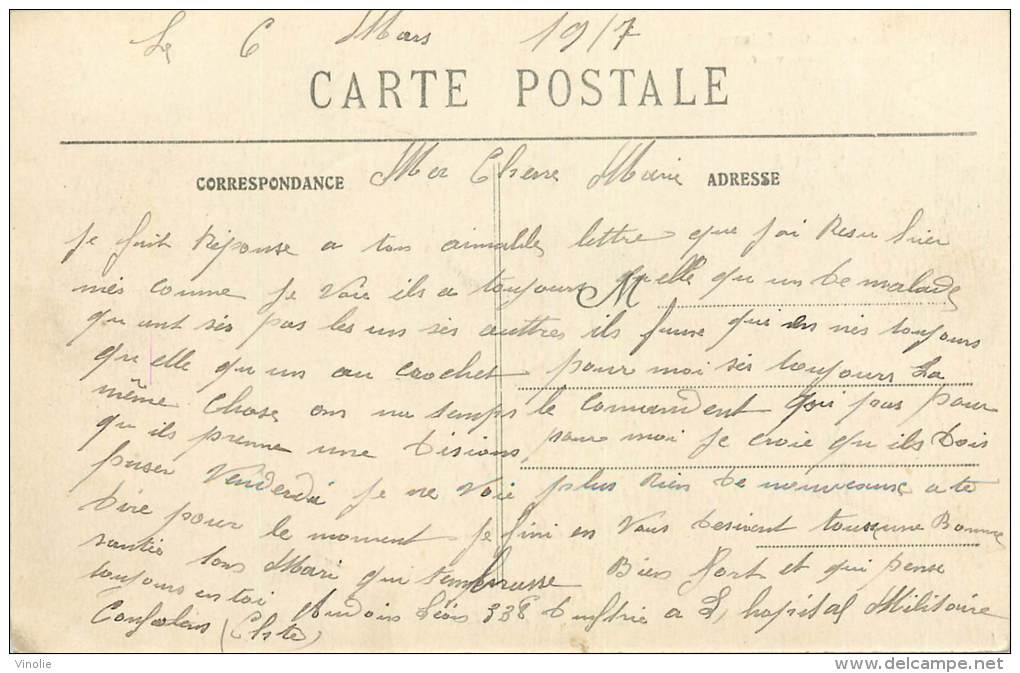 Le 6 Mars 1917
CARTE POSTALE
CORRESPONDANCE Ma Cherre Marie ADRESSE
Je fait Réponse a ton aimables lettre que jai Resu hier
mes comme Je Voie ils a toujours quelle qu un de malade
quant ses pas les un ses auttres ils faux qui en nes toujours
qu elle qu un au crochet pour moi ses toujours La
même Chose on na temps le comandent qui pas pour
qu ils prenne une Disions, pour moi Je croie qu ils Dois
passer Venderdi Je ne Voie plus Rien de nouveaux a te
Dire pour le moment Je fini en Vous desirent tous une Bonne
santée tons Mari qui tembrasse Bien Fort et qui pense
toujours en toi 338 a L hopital Militaire
Confolens
Vinolie
www.delcampe.net